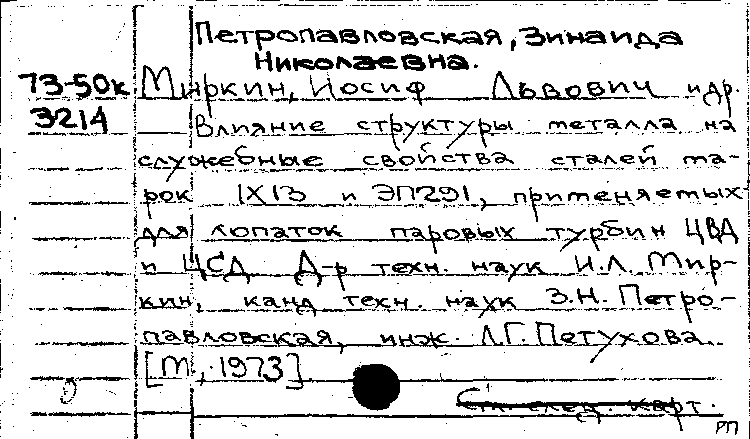 Петропавловская, Зинаида
Николаевна.
73-50к Миркин, Иосиф Львович и др.
3214 Влияние структуры металла на
служебные свойства сталей ма-
рок 1Х13 и ЭП291, применяемых
для лопаток паровых турбин ЦВД
и ЦСД. Д-р техн. наук И.Л. Мир-
кин, канд техн. наук З.Н. Петро-
павловская, инж. Л.Г. Петухова.
[М, 1973]
См. след. карт.
РП